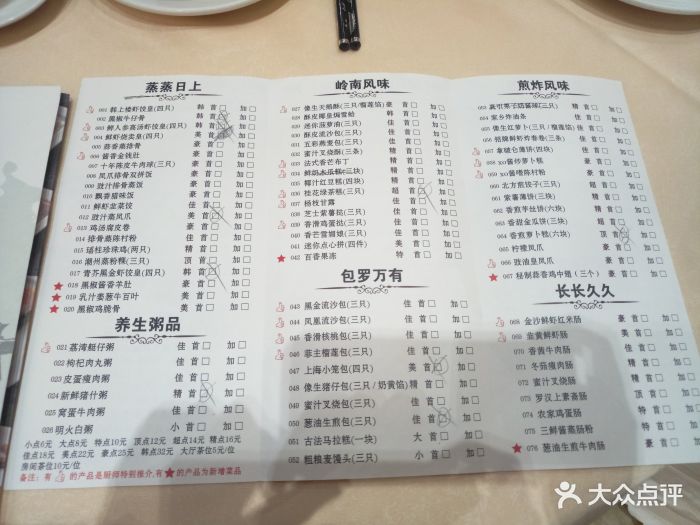 蒸蒸日上
001 韩上楼虾饺皇(四只) 韩 首□ 加□
002 黑椒牛仔骨 豪 首□ 加□
003 鲜人参高汤虾饺皇(四只) 韩 首□ 加□
004 鲜虾烧卖皇(四只) 美 首□ 加□
005 蒜香蒸排骨 豪 首□ 加□
006 酱香金钱肚 豪 首□ 加□
007 十年陈皮牛肉球(三只) 精 首□ 加□
008 凤爪排骨双拼饭 豪 首□ 加□
009 豉汁排骨蒸饭 精 首□ 加□
010 飘香腊味饭 豪 首□ 加□
011 鲜虾韭菜饺 佳 首□ 加□
012 豉汁蒸凤爪 美 首□ 加□
013 鸡汤腐皮卷 豪 首□ 加□
014 排骨蒸陈村粉 佳 首□ 加□
015 瑶柱珍珠鸡(两只) 精 首□ 加□
016 潮州蒸粉粿(三只) 顶 首□ 加□
017 青芥黑金虾饺皇(四只) 韩 首□ 加□
018 黑椒酱香羊肚 豪 首□ 加□
019 乳汁姜葱牛百叶 美 首□ 加□
020 黑椒鸡脆骨 美 首□ 加□
养生粥品
021 荔湾艇仔粥 佳 首□ 加□
022 枸杞肉丸粥 佳 首□ 加□
023 皮蛋瘦肉粥 佳 首□ 加□
024 新鲜猪什粥 精 首□ 加□
025 窝蛋牛肉粥 佳 首□ 加□
026 明火白粥 小 首□ 加□
小点6元 大点8元 特点10元 顶点12元 超点14元 精点16元
佳点18元 美点22元 豪点25元 韩点32元 大厅茶位5元/位
房间茶位10元/位
备注：有 的产品是厨师特别推介,有★的产品为新增菜品
岭南风味
027 像生天鹅酥(三只/榴莲馅) 豪 首□ 加□
028 酥皮椰皇焗雪蛤 韩 首□ 加□
029 迷你菠萝油(三只) 佳 首□ 加□
030 酥皮流沙包(三只) 佳 首□ 加□
031 五彩燕麦包(三只) 佳 首□ 加□
032 蜜汁叉烧酥(三条) 佳 首□ 加□
033 法式香芒布丁 精 首□ 加□
034 鲜奶木瓜糕(三块) 精 首□ 加□
035 椰汁红豆糕(四块) 精 首□ 加□
036 桂花绿茶糕(三只) 超 首□ 加□
037 杨枝甘露 佳 首□ 加□
038 芝士紫薯挞(三只) 佳 首□ 加□
039 香滑鸡蛋挞(三只) 佳 首□ 加□
040 香芒雪媚娘(三只) 佳 首□ 加□
041 迷你点心拼(四件) 美 首□ 加□
042 百香果冻 特 首□ 加□
包罗万有
043 黑金流沙包(三只) 佳 首□ 加□
044 凤凰流沙包(三只) 佳 首□ 加□
045 香滑核桃包(三只) 佳 首□ 加□
046 非主榴莲包(三只) 佳 首□ 加□
047 上海小笼包(四只) 美 首□ 加□
048 像生猪仔包(三只/奶黄馅) 精 首□ 加□
049 蜜汁叉烧包(三只) 佳 首□ 加□
050 葱油生煎包(三只) 佳 首□ 加□
051 古法马拉糕(一块) 大 首□ 加□
052 粗粮麦馒头(三只) 小 首□ 加□
煎炸风味
精 首□ 加□
054 家乡炸油条 佳 首□ 加□
055 像生红萝卜(三只/榴莲馅) 佳 首□ 加□
佳 首□ 加□
057 拿破仑薄饼(四块) 佳 首□ 加□
058 xo酱炒萝卜糕 豪 首□ 加□
059 xo酱嗜陈村粉 豪 首□ 加□
060 北方煎饺子(三只) 超 首□ 加□
061 紫薯薄饼(三块) 精 首□ 加□
062 香煎芋丝饼(六块) 精 首□ 加□
063 香甜金瓜饼(三块) 超 首□ 加□
064 香煎萝卜糕(六块) 顶 首□ 加□
065 柠檬凤爪 佳 首□ 加□
066 豉油皇凤爪 美 首□ 加□
067 秘制蒜香鸡中翅(三个) 豪 首□ 加□
长长久久
068 金沙鲜虾红米肠 豪 首□ 加□
069 韭黄鲜虾肠 豪 首□ 加□
070 香酱牛肉肠 佳 首□ 加□
071 冬菇瘦肉肠 佳 首□ 加□
072 蜜汁叉烧肠 佳 首□ 加□
073 罗汉上素斋肠 顶 首□ 加□
074 农家鸡蛋肠 特 首□ 加□
075 三鲜酱蒸肠粉 特 首□ 加□
076 葱油生煎牛肉肠 豪 首□ 加□
大众点评